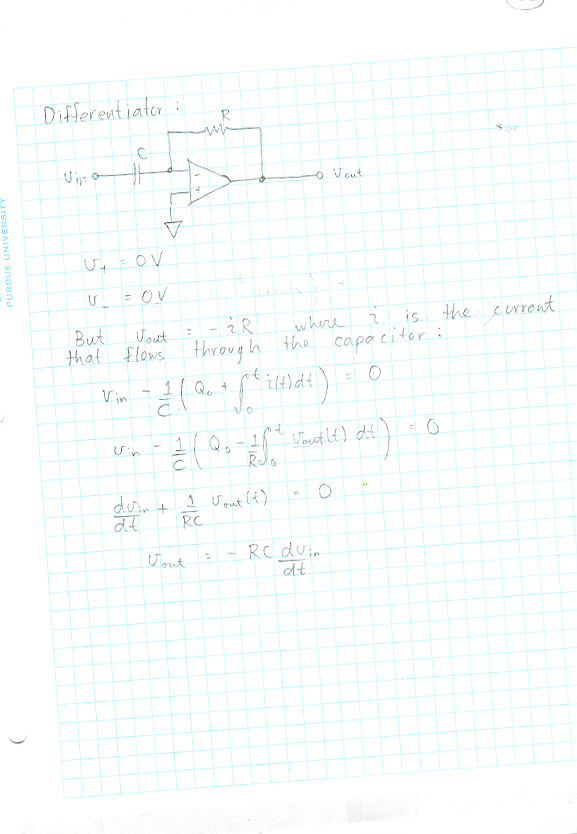 Differentiator :
R
C
Vin
Vout
-
+
V+ = 0V
V_ = 0V
But Vout = - iR where i is the current
that flows through the capacitor :
Vin - 1/C ( Q₀ + ∫₀ᵗ i(t) dt ) = 0
Vin - 1/C ( Q₀ - 1/R ∫₀ᵗ Vout(t) dt ) = 0
dVin/dt + 1/RC Vout(t) = 0
Vout = - RC dVin/dt
PURDUE UNIVERSITY